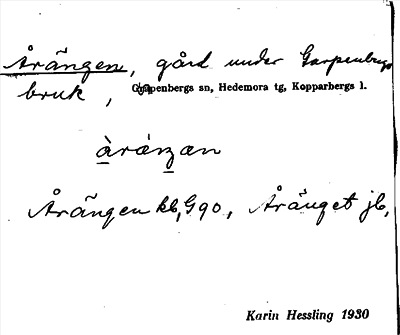 Årängen, gård under Garpenbergs
bruk, Garpenbergs sn, Hedemora tg, Kopparbergs l.
àrán̠z̠an
Årängen kb, G 90, Åränget jb,
Karin Hessling 1930